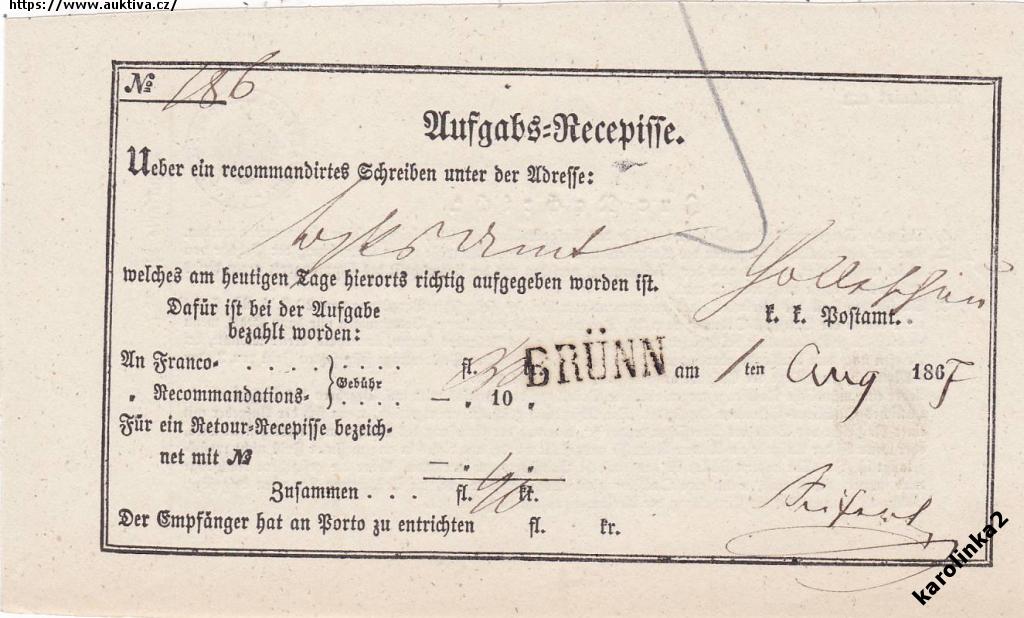 https://www.auktiva.cz/
№ 186
Aufgabs-Recepisse.
Ueber ein recommandirtes Schreiben unter der Adresse:
welches am heutigen Tage hierorts richtig aufgegeben worden ist.
Dafür ist bei der Aufgabe
bezahlt worden:
k. k. Postamt.
An Franco- . . . . . . . . . fl.
BRÜNN am 1 ten Aug 1867
„ Recommandations- . . . . — „ 10 „
Gebühr
Für ein Retour-Recepisse bezeich-
net mit № — „ „
Zusammen . . . fl. kr.
Der Empfänger hat an Porto zu entrichten fl. kr.
karolinka2